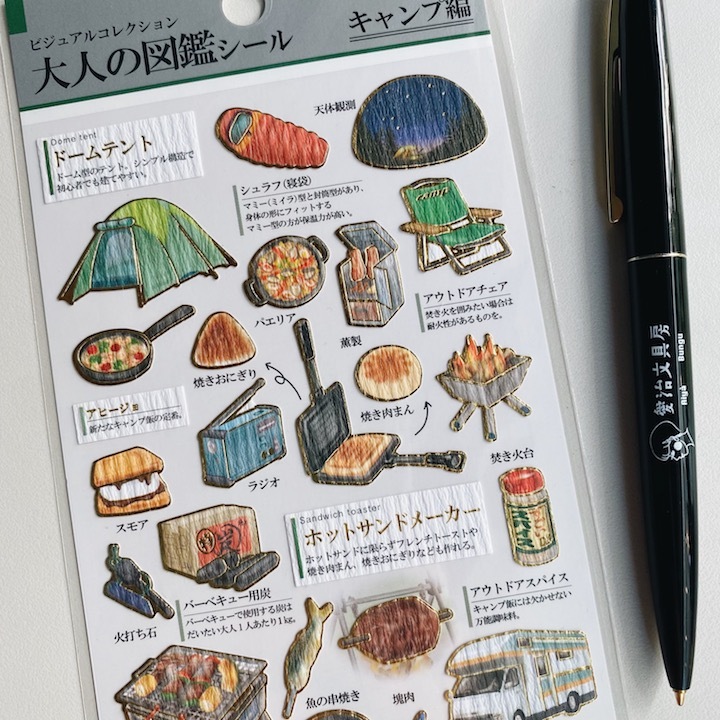 ビジュアルコレクション
大人の図鑑シール
キャンプ編
天体観測
Dome tent
ドームテント
ドーム型のテント。シンプル構造で
初心者でも建てやすい。
シュラフ(寝袋)
マミー(ミイラ)型と封筒型があり、
身体の形にフィットする
マミー型の方が保温力が高い。
camp
パエリア
燻製
アウトドアチェア
焚き火を囲みたい場合は
耐火性があるものを。
焼きおにぎり
焼き肉まん
アヒージョ
新たなキャンプ飯の定番。
ラジオ
焚き火台
スモア
Sandwich toaster
ホットサンドメーカー
ホットサンドに限らずフレンチトーストや
焼き肉まん、焼きおにぎりなども作れる。
スパイス
火打ち石
バーベキュー用炭
バーベキューで使用する炭は
だいたい大人1人あたり1kg。
アウトドアスパイス
キャンプ飯には欠かせない
万能調味料。
魚の串焼き
塊肉
愛治文具房
Aiyà Bungu